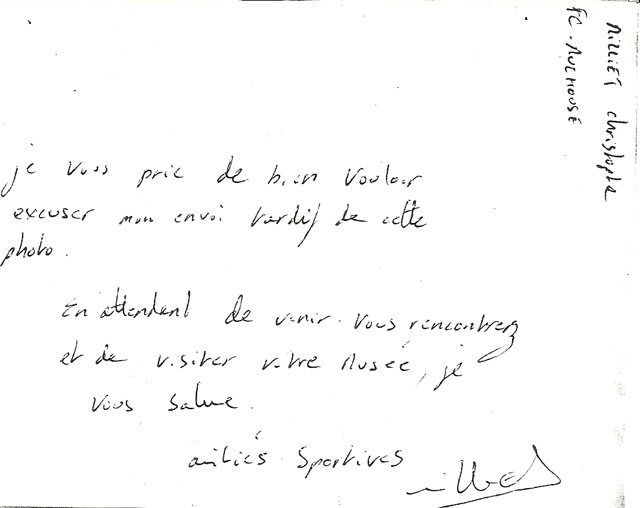 MILLIET Christophe
FC-MULHOUSE
je vous prie de bien vouloir
excuser mon envoi tardif de cette
photo.
En attendant de venir vous rencontrer
et de visiter votre Musée, je
vous salue.
amitiés Sportives